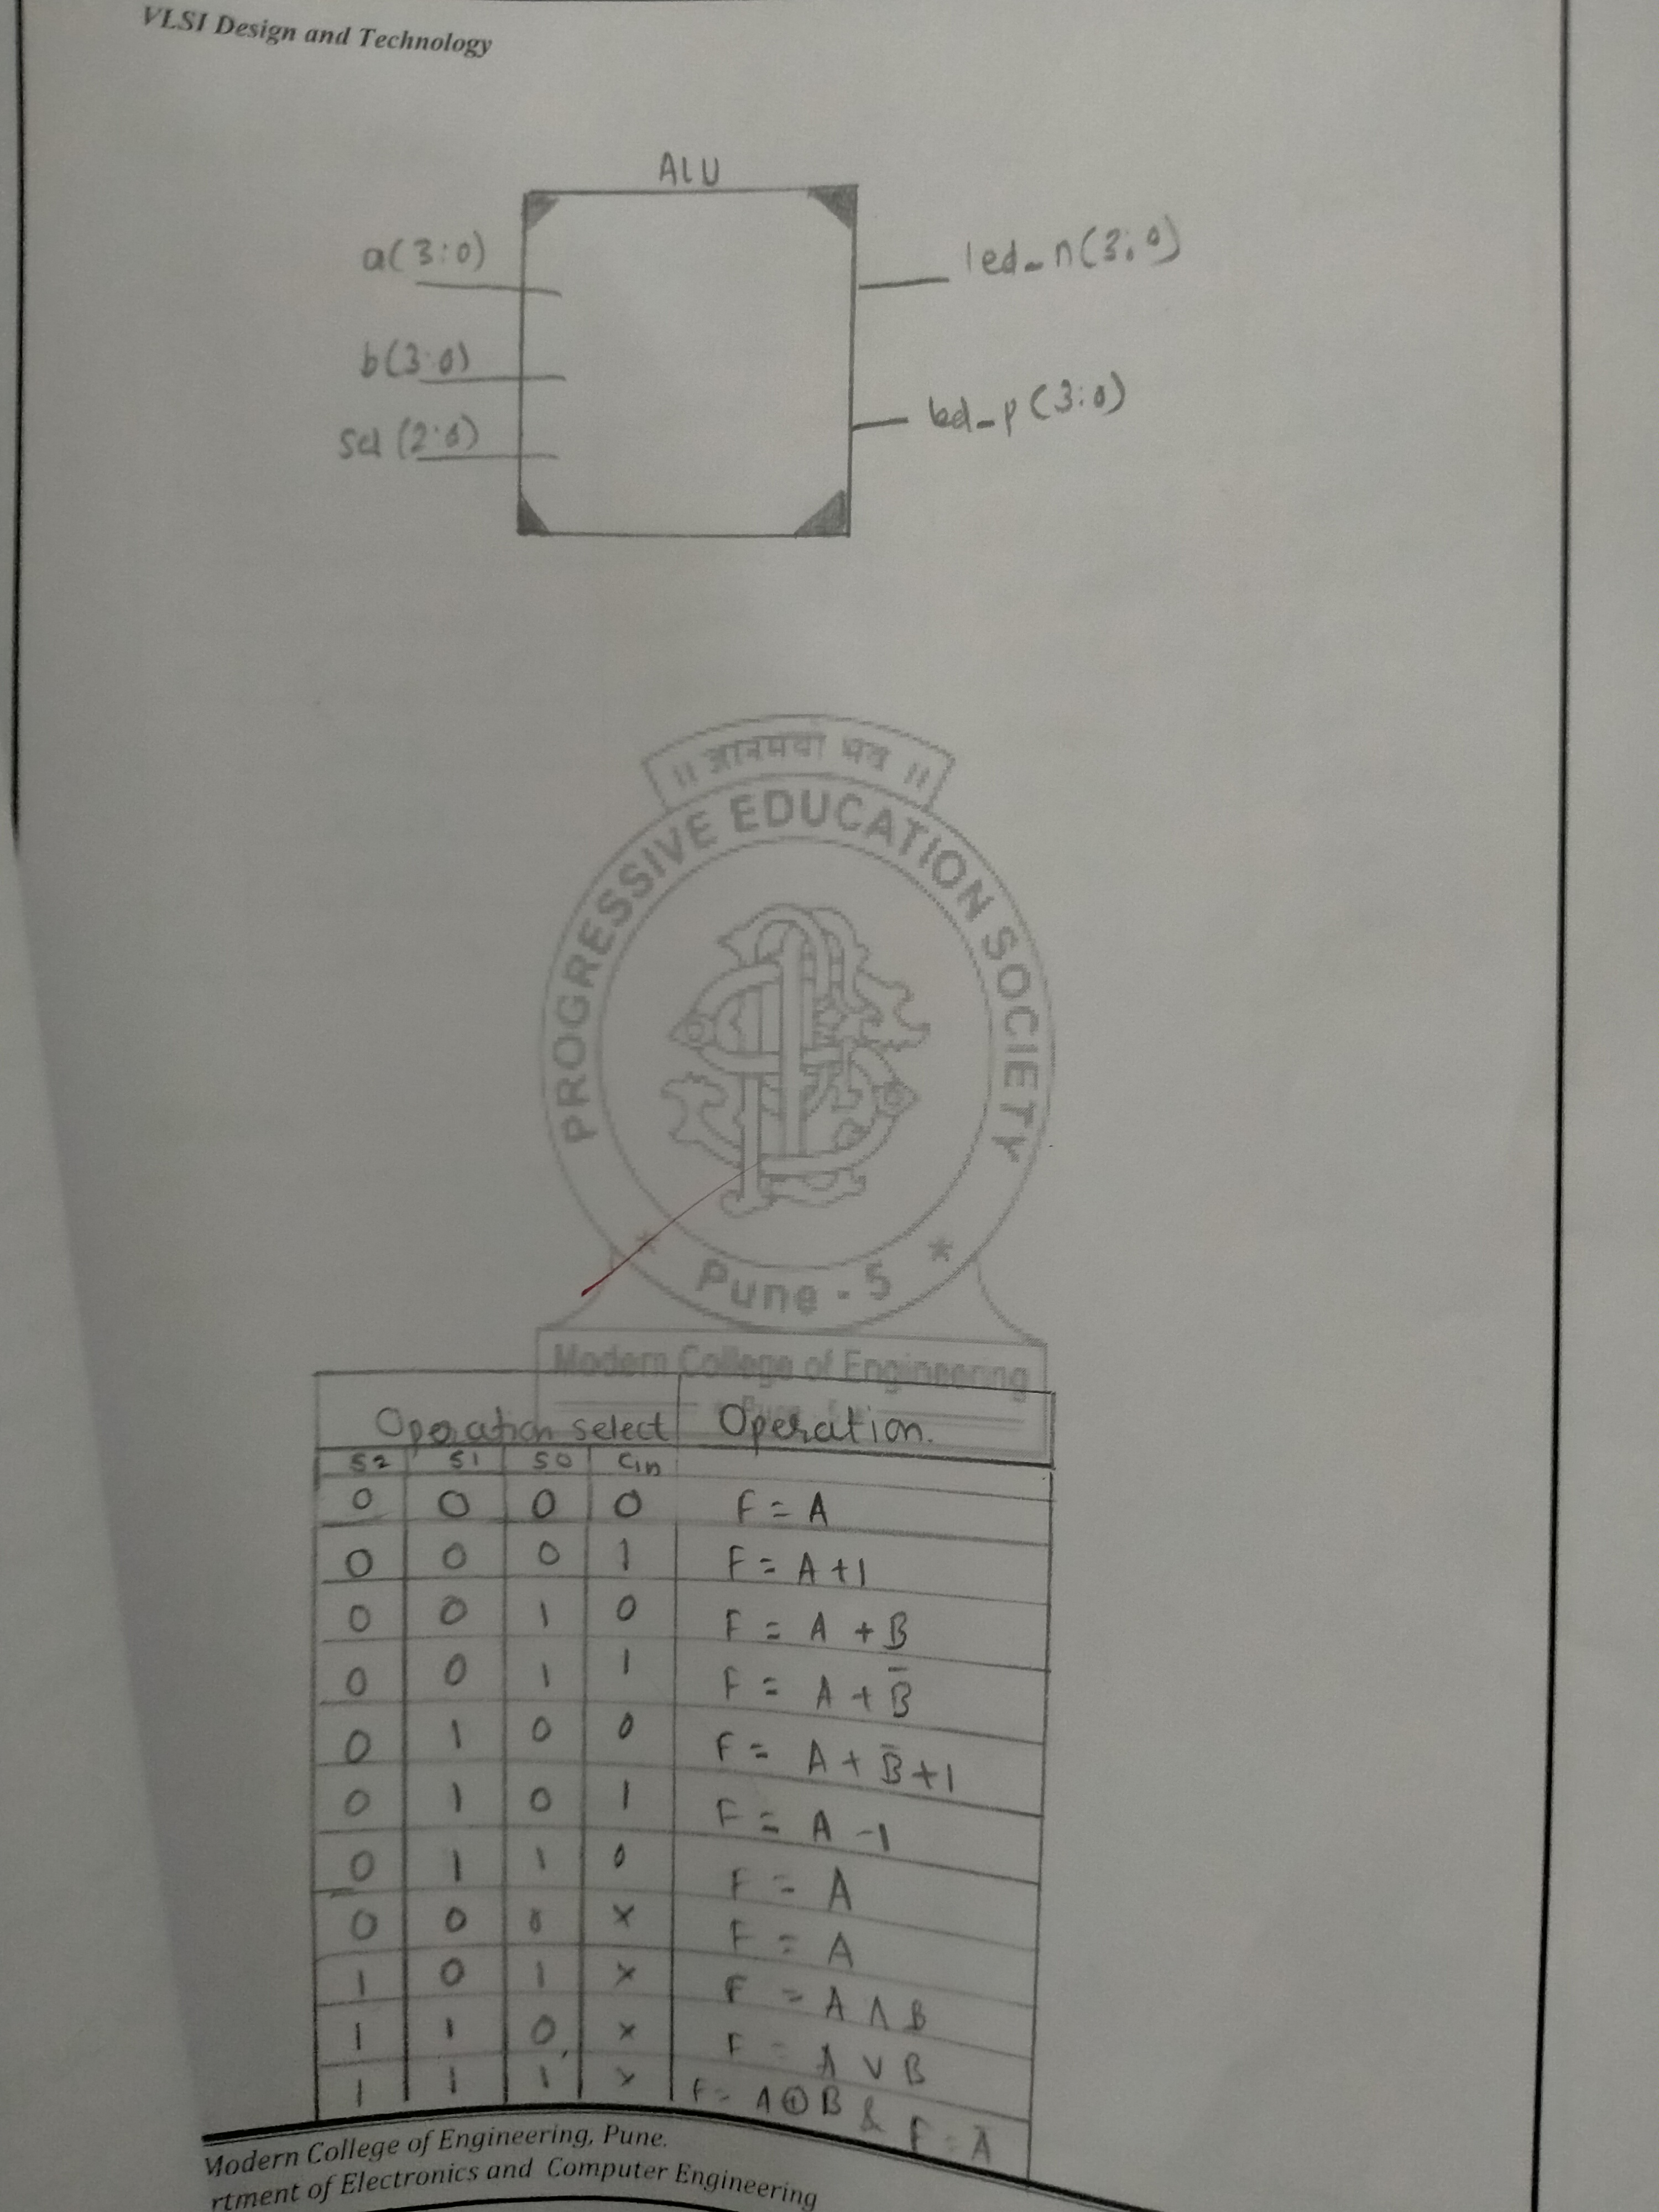 VLSI Design and Technology
ALU
a(3:0)
led_n(3:0)
b(3:0)
led_p(3:0)
sel(2:0)
PROGRESSIVE EDUCATION SOCIETY
* Pune - 5 *
Modern College of Engineering
Operation select Operation.
S2 S1 S0 Cin
0 0 0 0 F = A
0 0 0 1 F = A+1
0 0 1 0 F = A + B
0 0 1 1 F = A + B̅
0 1 0 0 F = A + B̅ +1
0 1 0 1 F = A -1
0 1 1 0 F = A
0 0 0 x F = A
1 0 1 x F = A ∧ B
1 1 0 x F = A ∨ B
1 1 1 x F = A ⊕ B & F = A̅
Modern College of Engineering, Pune.
rtment of Electronics and Computer Engineering